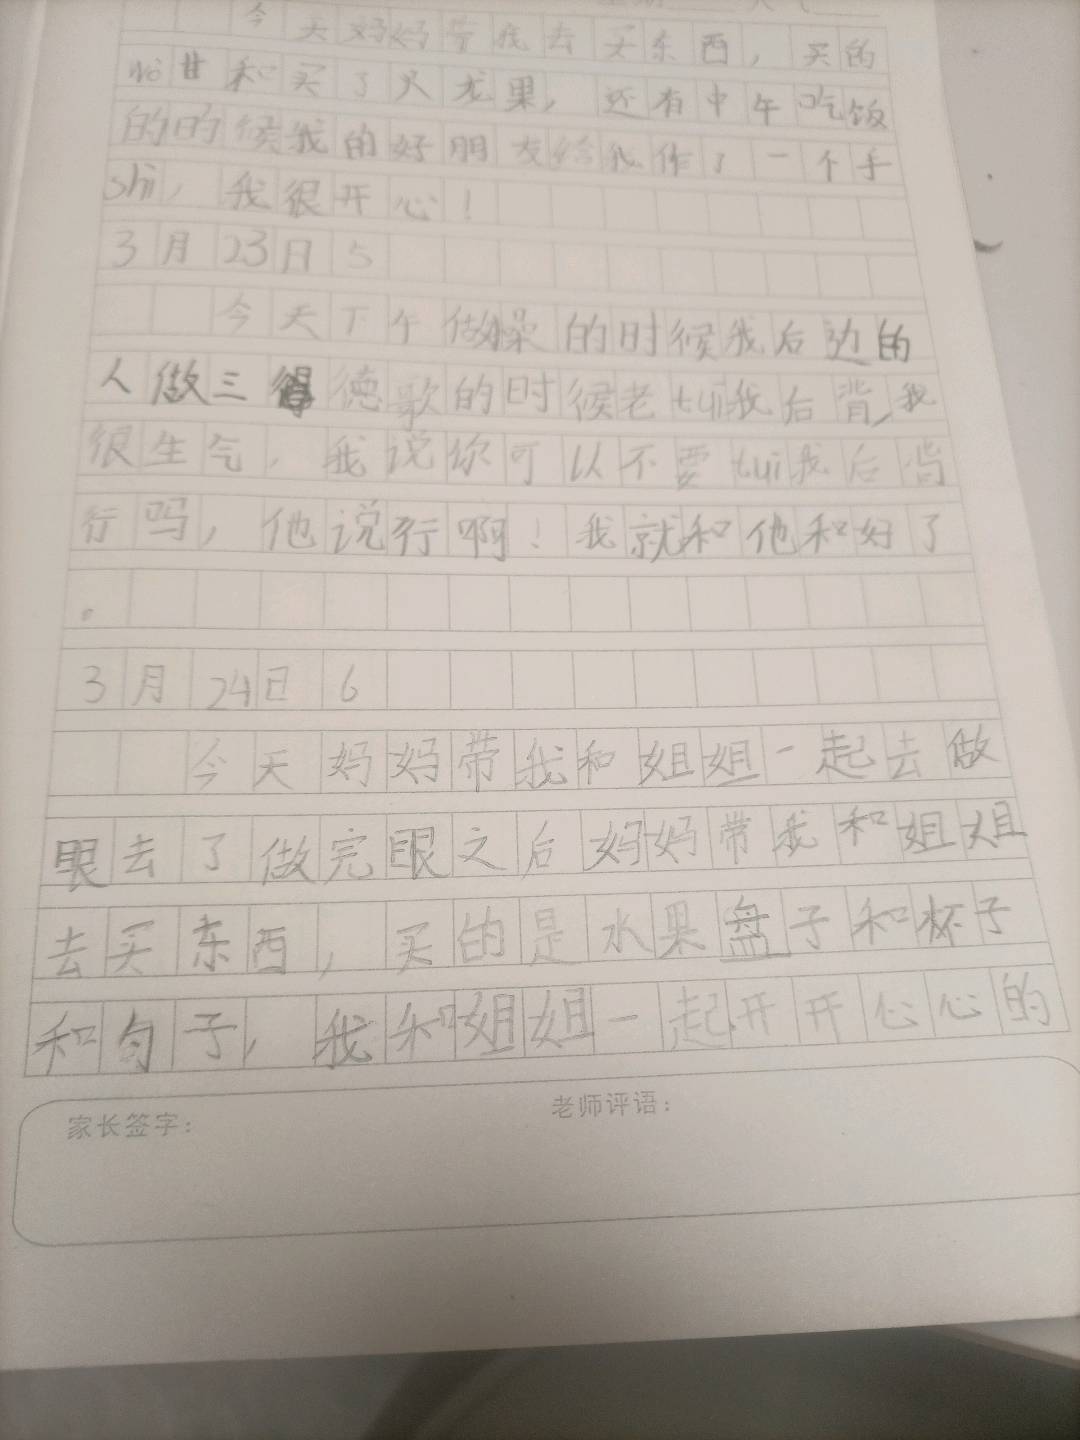 今天妈妈带我去买东西，买的
甘和买了火龙果，还有中午吃饭
的的候我的好朋友给我作了一个手
shi，我很开心！
3月23日5
今天下午做操的时候我后边的
人做三德歌的时候老tui我后背，我
很生气，我说你可以不要tui我后背
行吗，他说行啊！我就和他和好了
。
3月24日6
今天妈妈带我和姐姐一起去做
眼去了做完眼之后妈妈带我和姐姐
去买东西，买的是水果盘子和杯子
和勺子，我和姐姐一起开开心心的
家长签字：
老师评语：